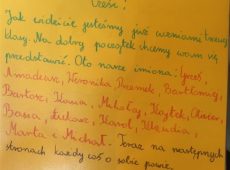 Cześć!
Jak widzicie jesteśmy już uczniami trzeciej
klasy. Na dobry początek chcemy wam się
przedstawić. Oto nasze imiona: Grześ,
Amadeusz, Weronika, Przemek, Bartłomiej,
Bartosz, Ksawia, Mikołaj, Wojtek, Oliwier,
Basia, Łukasz, Karol, Klaudia,
Marta i Michał. Teraz na następnych
stronach każdy coś o sobie powie.